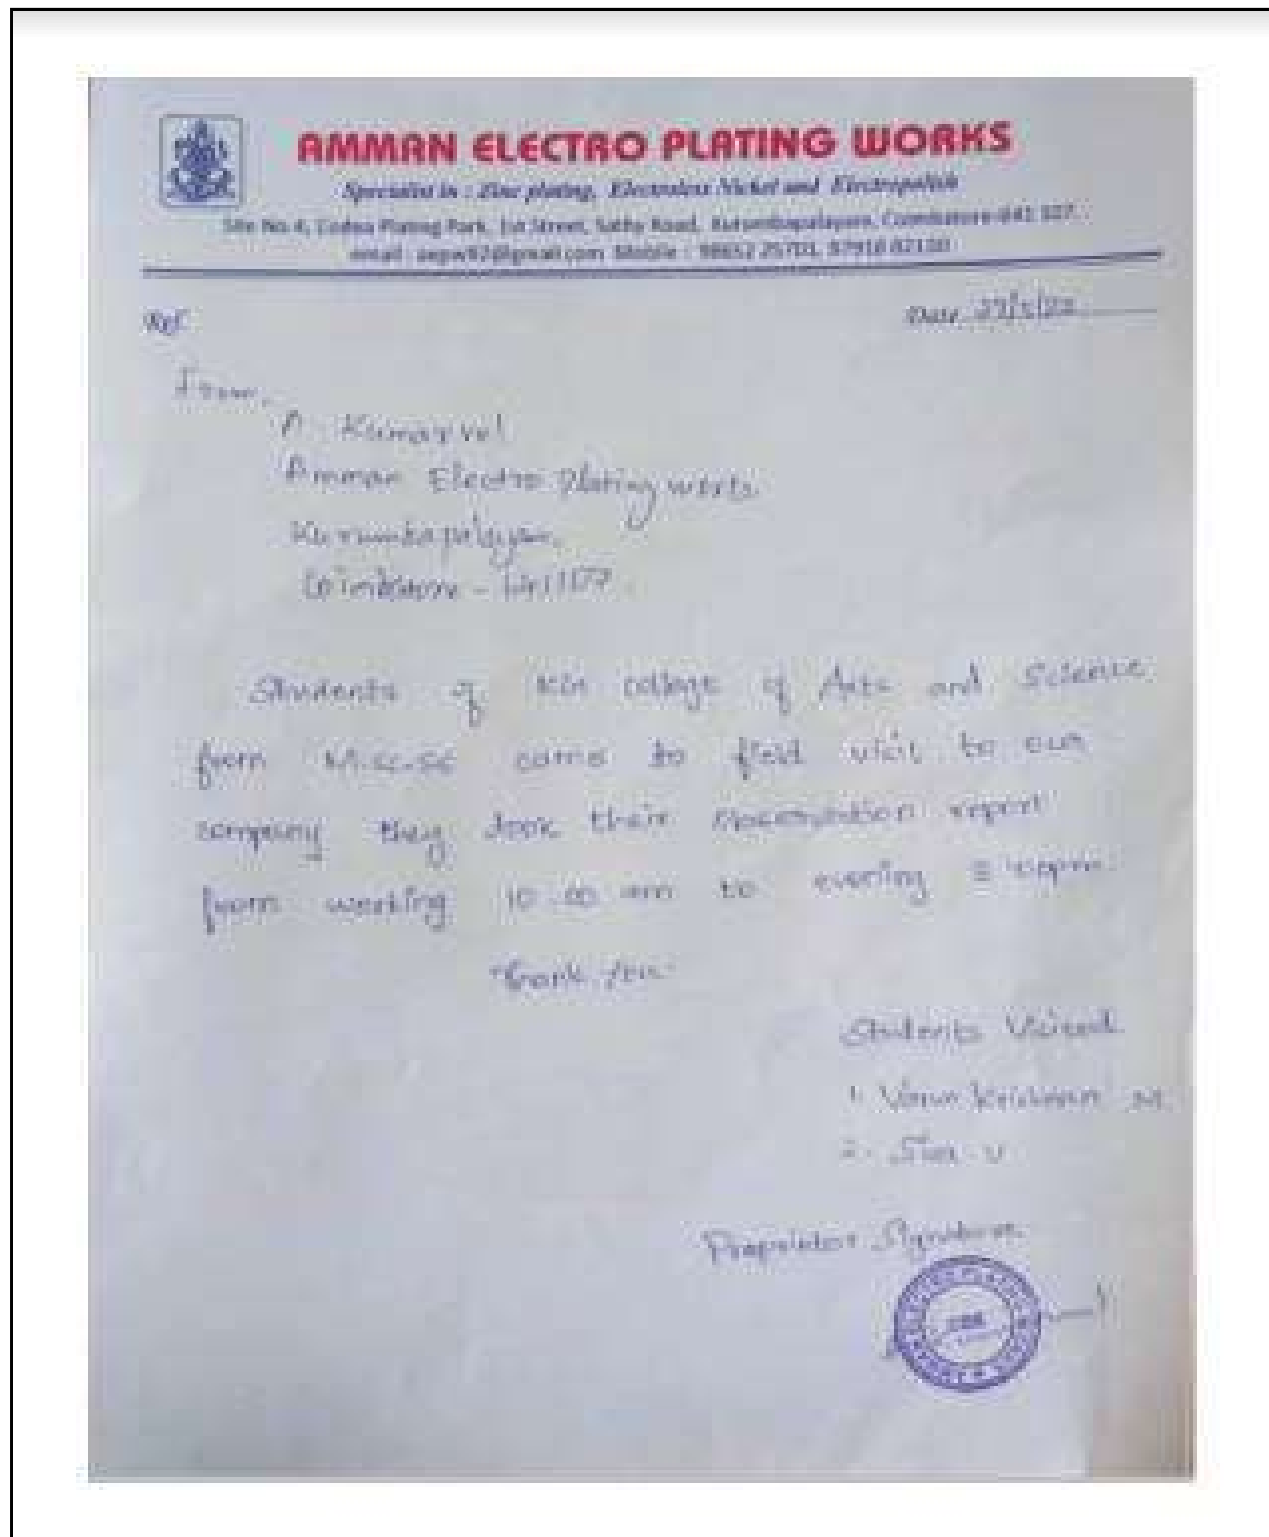 AMMAN ELECTRO PLATING WORKS
Specialist in : Zinc plating, Electroless Nickel and Electropolish
Site No.4, Codea Plating Park, 1st Street, Sathy Road, Kurumbapalayam, Coimbatore-641 107.
email : aepw97@gmail.com Mobile :
Ref.
Date
From,
A. Kumarvel
Amman Electro Plating works
Kurumbapalayam,
Coimbatore -
Students of college of Arts and Science
from M.sc.ss came to field visit to our
company they took their observation report
from working 10.00 am to evening
Thank you
Students Visited
1. Varun Krishnan M
2. Siva. V
Proprietor Signature
ELECTRO PLATING WORKS AMMAN
CBE